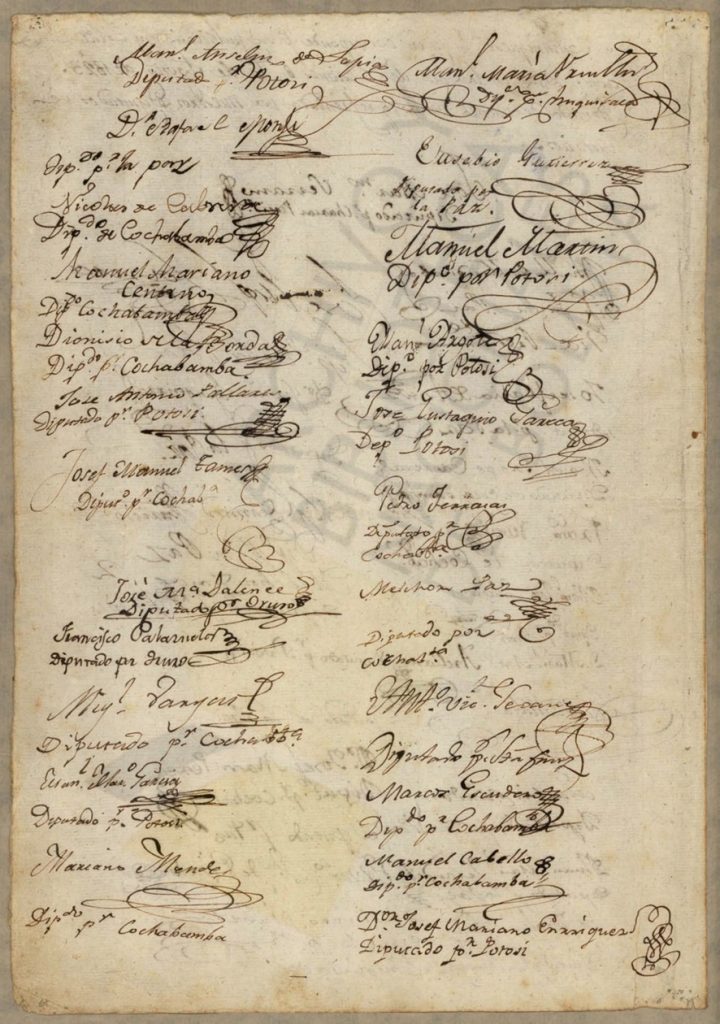 Man.l Anselmo de Tapia
Diputado p.r Potosi
D.r Rafael Monje
Dip.do p.r la paz
Nicolas de Cabrera
Dip.do de Cochabamba
Manuel Mariano
Centeno
Dip.do Cochabamba
Dionisio de la Borda
Dip.do p.r Cochabamba
Jose Antonio Pallares
Diputado p.r Potosi
Josef Manuel Tames
Diput.o p.r Cochab.a
José Ma. Dalence
Diputado por Oruro
Francisco Palazuelos
diputado por oruro
Mig.l Vargas
Diputado p.r Cochab.ba
Man.o Garcia
Diputado p.r Potosi
Mariano Mendez
Dip.do p.r Cochabamba
Man.l María Urcullu
Dip.o p.r Chuquisaca
Eusebio Gutierrez
Diputado por
la Paz.
Manuel Martin
Dip.o por Potosi
Man.l Argote
Dip.o por Potosi
Jose Eustaquio Gareca
Dep.o Potosi
Pedro Terrazas
Diputado p.r
Cochabba
Melchor Paz
Diputado por
cochab.ba
Ant.o Vic.te Seoane
Diputado p.r Sta Cruz
Marcos Escudero
Dip.do p.r Cochabamba
Manuel Cabello
dip.do p.r Cochabamba
D.on Josef Mariano Enrriquez
Diputado p.r Potosi